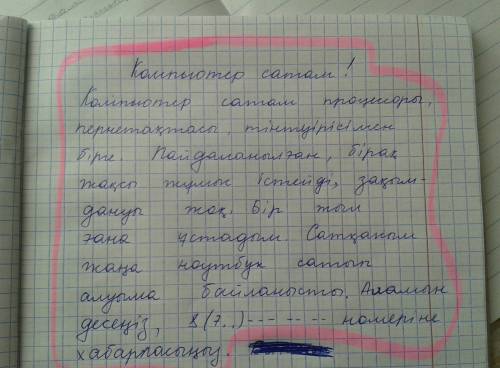 Компьютер сатам!
Компьютер сатам процесоры,
пернетақтасы, тінтуірісімен
бірге. Пайдаланылған, бірақ
жақсы жұмыс істейді, зақым-
дануы жақ. Бір жыл
ғана ұстадым. Сатқаным
жаңа ноутбук сатып
алуыма байланысты. Аламын
десеңіз, 8(7..)--- -- -- номеріне
хабарласыңыз.